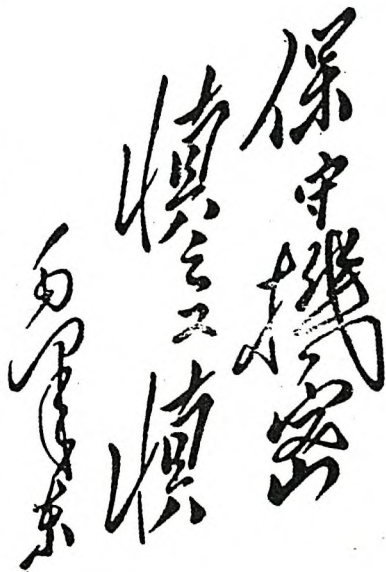 保守機密
慎之又慎
毛澤東